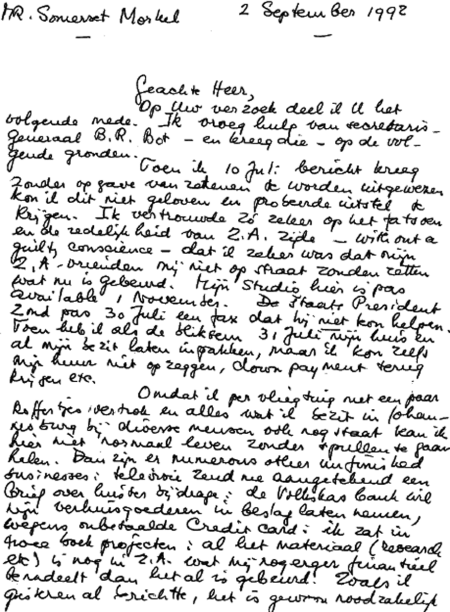 MR. Somerset Morkel 2 September 1992
Geachte Heer,
Op Uw verzoek deel ik U het
volgende mede. Ik vroeg hulp van secretaris-
generaal B.R. Bot - en kreeg die - op de vol-
gende gronden.
Toen ik 10 Juli bericht kreeg
zonder opgave van redenen te worden uitgewezen
kon ik dit niet geloven en probeerde uitstel te
krijgen. Ik vertrouwde zo zeker op het fatsoen
en de redelijkheid van Z.A. zijde - without a
guilty conscience - dat ik zeker was dat mijn
Z.A.-vrienden mij niet op straat zouden zetten
wat nu is gebeurd. Mijn Studio hier is pas
available 1 November. De Staats President
zond pas 30 Juli een fax dat hij niet kon helpen.
Toen heb ik als de bliksem 31 Juli mijn huis en
al mijn bezit laten inpakken, maar ik kon zelfs
mijn huur niet opzeggen, down payment terug
krijgen etc.
Omdat ik per vliegtuig met een paar
koffertjes vertrok en alles wat ik bezit in Johan-
nesburg bij diverse mensen ook nog staat kan ik
hier niet normaal leven zonder spullen te gaan
halen. Dan zijn er numerous other unfinished
businesses: televisie zend me aangetekend een
brief over luister bijdrage: de Volkskas bank wil
mijn verhuisgoederen in beslag laten nemen,
wegens onbetaalde Credit card: ik zat in
twee boek projecten: al het materiaal (research
etc) is nog in Z.A. wat mij nog erger financieel
benadeelt dan het al is gebeurd. Zoals ik
gisteren al berichtte, het is gewoon noodzakelijk